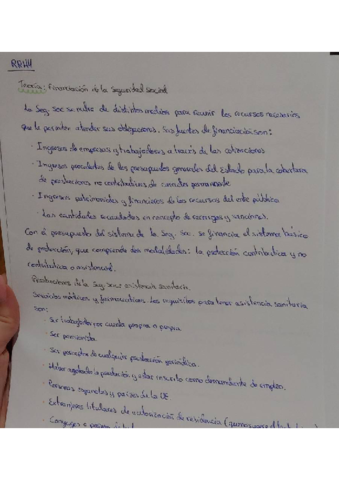 RRHH
Teoría: Financiación de la Seguridad Social
La Seg. soc se nutre de distintos medios para reunir los recursos necesarios
que le permiten atender sus obligaciones. Sus fuentes de financiación son:
· Ingresos de empresas y trabajadores a través de las cotizaciones
· Ingresos procedentes de los presupuestos generales del Estado para la cobertura
de prestaciones no contributivas de carácter permanente
· Ingresos patrimoniales y financieros de los recursos del ente público
· Las cantidades recaudadas en concepto de recargos y sanciones.
Con el presupuesto del sistema de la Seg. Soc. se financia el sistema básico
de protección, que comprende dos modalidades: la protección contributiva y no
contributiva o asistencial.
Prestaciones de la Seg. soc: asistencia sanitaria
Servicios médicos y farmacéuticos. Los requisitos para tener asistencia sanitaria
son:
· Ser trabajador por cuenta propia o ajena.
· Ser pensionista.
· Ser perceptor de cualquier prestación periódica.
· Haber agotado la prestación y estar inscrito como demandante de empleo.
· Personas españolas y países de la UE
· Extranjeros titulares de autorización de residencia (
· Cónyuges o